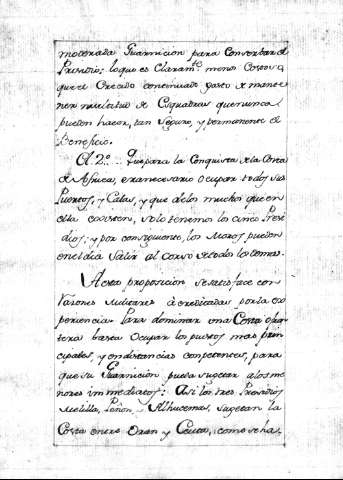 moderada Guarnicion para Conserbar el
Presidio: lo que es Claramte. menos Costoso,
que el Crecido continuado gasto de mante
ner multitud de Esquadras que nunca
pueden hacer, tan Seguro, y permanente el
Beneficio.
Al 2º... Que para la Conquista de la Costa
de Africa, era necesario Ocupar todos sus
Puertos, y Calas, y que de los muchos que en
ella existen, solo tenemos los cinco Presi
dios; y por consiguiente, los Moros pueden
en el dia Salir al corso de todos los demas.
A esta proposicion se satisface con
razones Militares acreditadas por la ex
periencia. Para dominar una Costa o fron
tera basta Ocupar los puestos mas prin
cipales, y en distancias competentes, para
que su Guarnicion pueda sugetar a los me
nores immediatos: Asi los tres Presidios
Melilla, Peñon y Alhucemas, sugetan la
Costa entre Oran y Ceuta, como se ha,